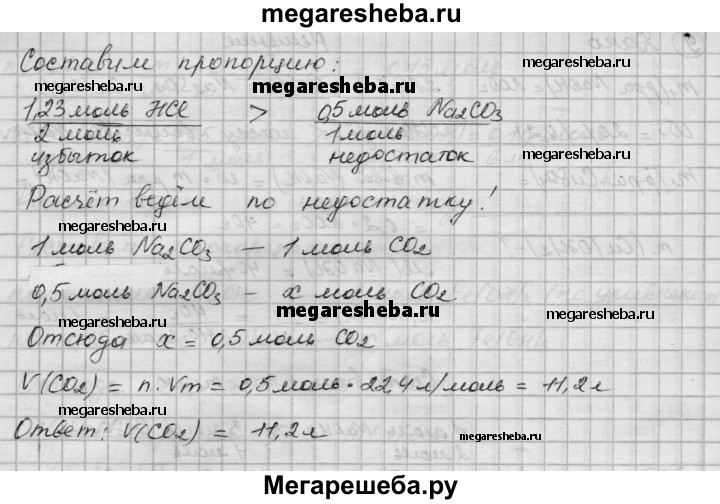 megaresheba.ru
Составим пропорцию:
megaresheba.ru megaresheba.ru megaresheba.ru
1,23 моль HCl > 0,5 моль Na2CO3
2 моль 1 моль
избыток недостаток
megaresheba.ru megaresheba.ru
Расчёт ведём по недостатку!
megaresheba.ru
1 моль Na2CO3 — 1 моль CO2
megaresheba.ru
0,5 моль Na2CO3 — x моль CO2
megaresheba.ru megaresheba.ru
Отсюда x = 0,5 моль CO2
V(CO2) = n · Vm = 0,5 моль · 22,4 л/моль = 11,2 л
megaresheba.ru
Ответ: V(CO2) = 11,2 л
megaresheba.ru
Мегарешеба.ру